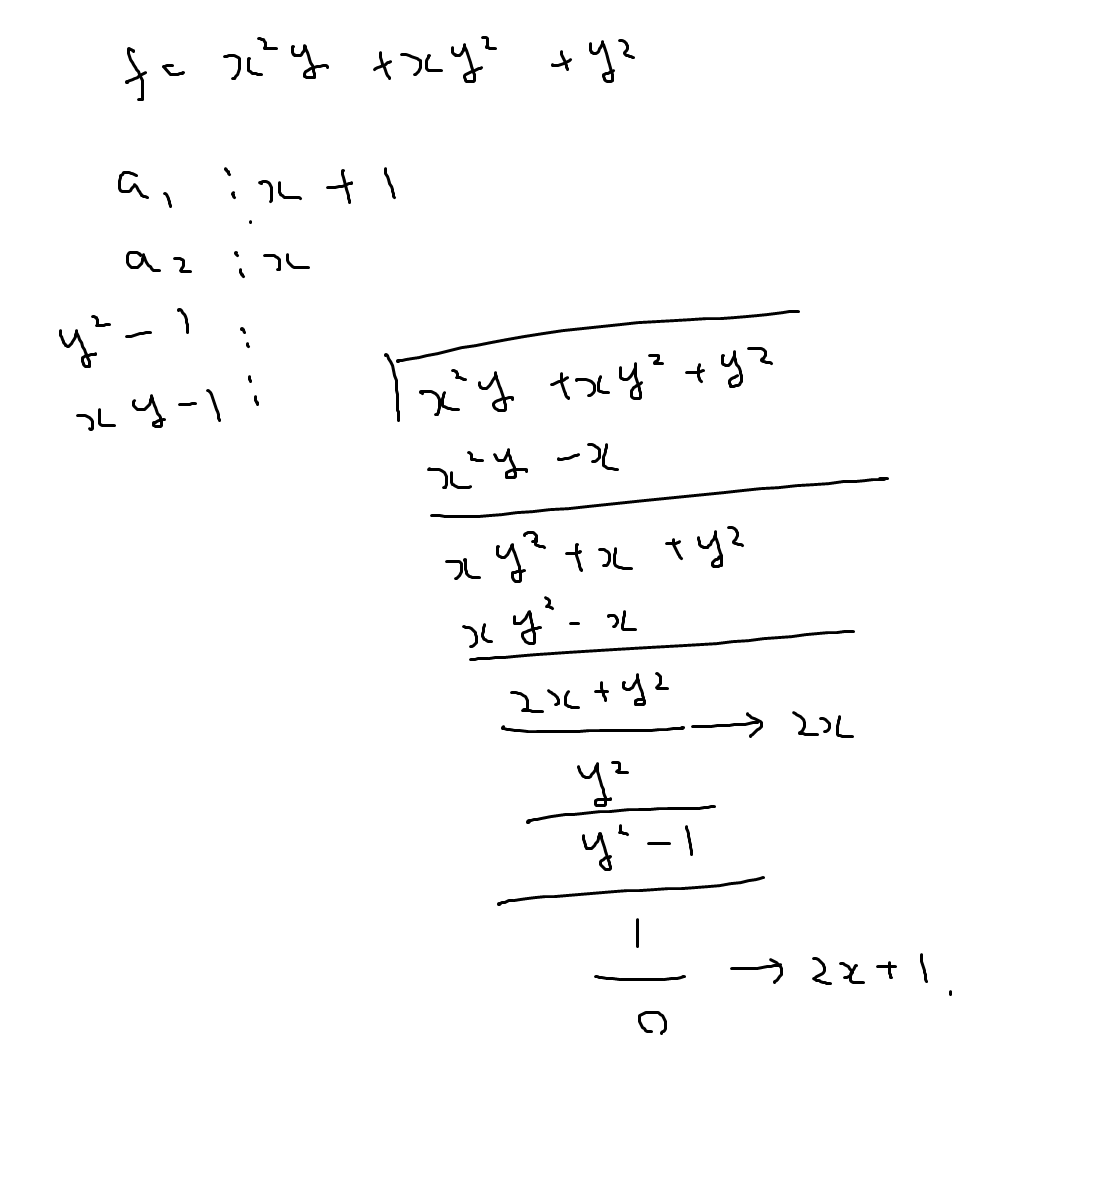 f = x²y + xy² + y²
a₁ : x + 1
a₂ : x
y² - 1 :
xy - 1 :
x²y + xy² + y²
x²y - x
xy² + x + y²
xy² - x
2x + y² → 2x
y²
y² - 1
1 → 2x + 1.
0